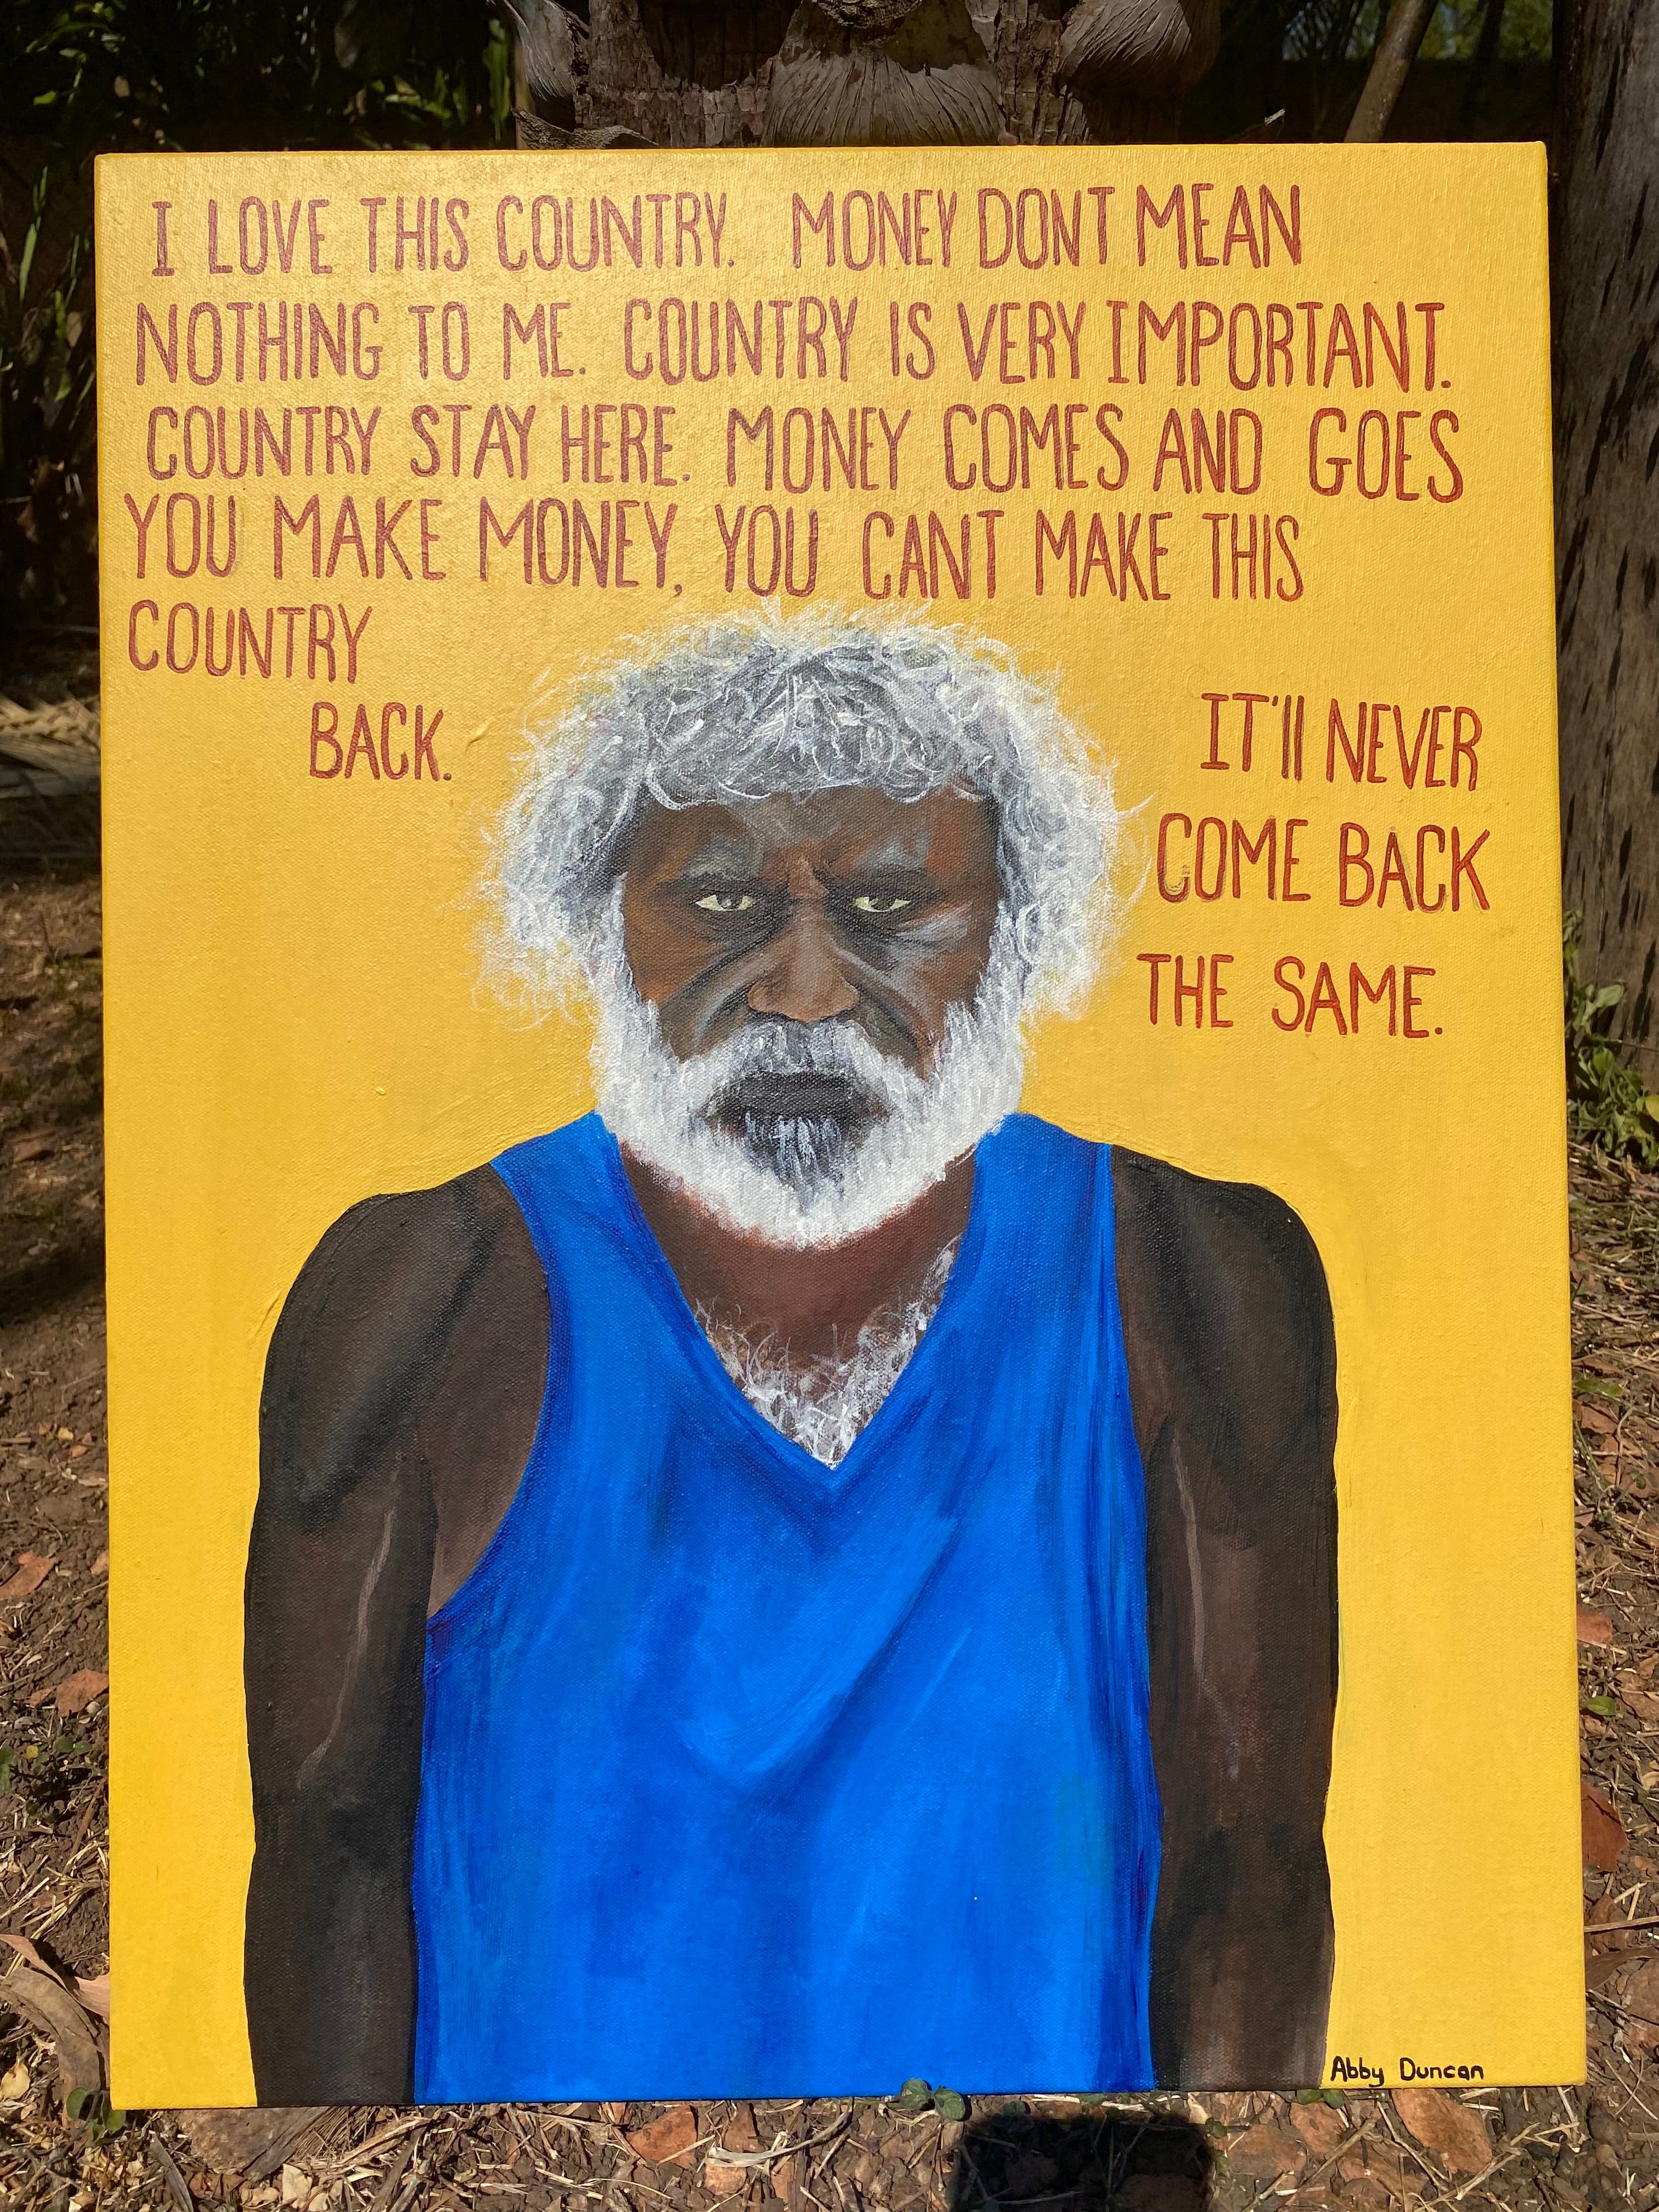 I LOVE THIS COUNTRY. MONEY DONT MEAN
NOTHING TO ME. COUNTRY IS VERY IMPORTANT.
COUNTRY STAY HERE. MONEY COMES AND GOES
YOU MAKE MONEY, YOU CANT MAKE THIS
COUNTRY
BACK.
IT'll NEVER
COME BACK
THE SAME.
Abby Duncan